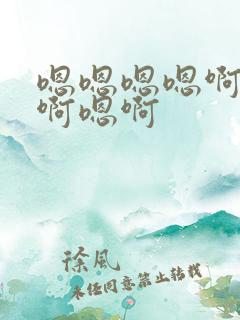 嗯嗯嗯嗯啊
啊嗯啊
徐风
未经同意禁止转载